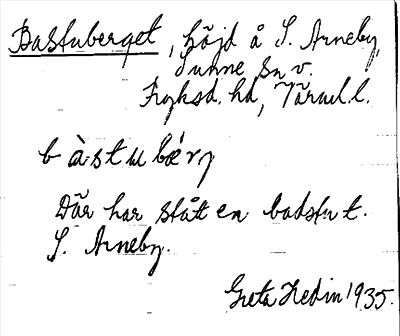 Bastuberget, höjd å S. Arneby,
Sunne sn v.
Fryksd. hd, Värml. l.
bàstubǽrj
Där har stått en badstut.
S. Arneby.
Greta Hedin 1935.